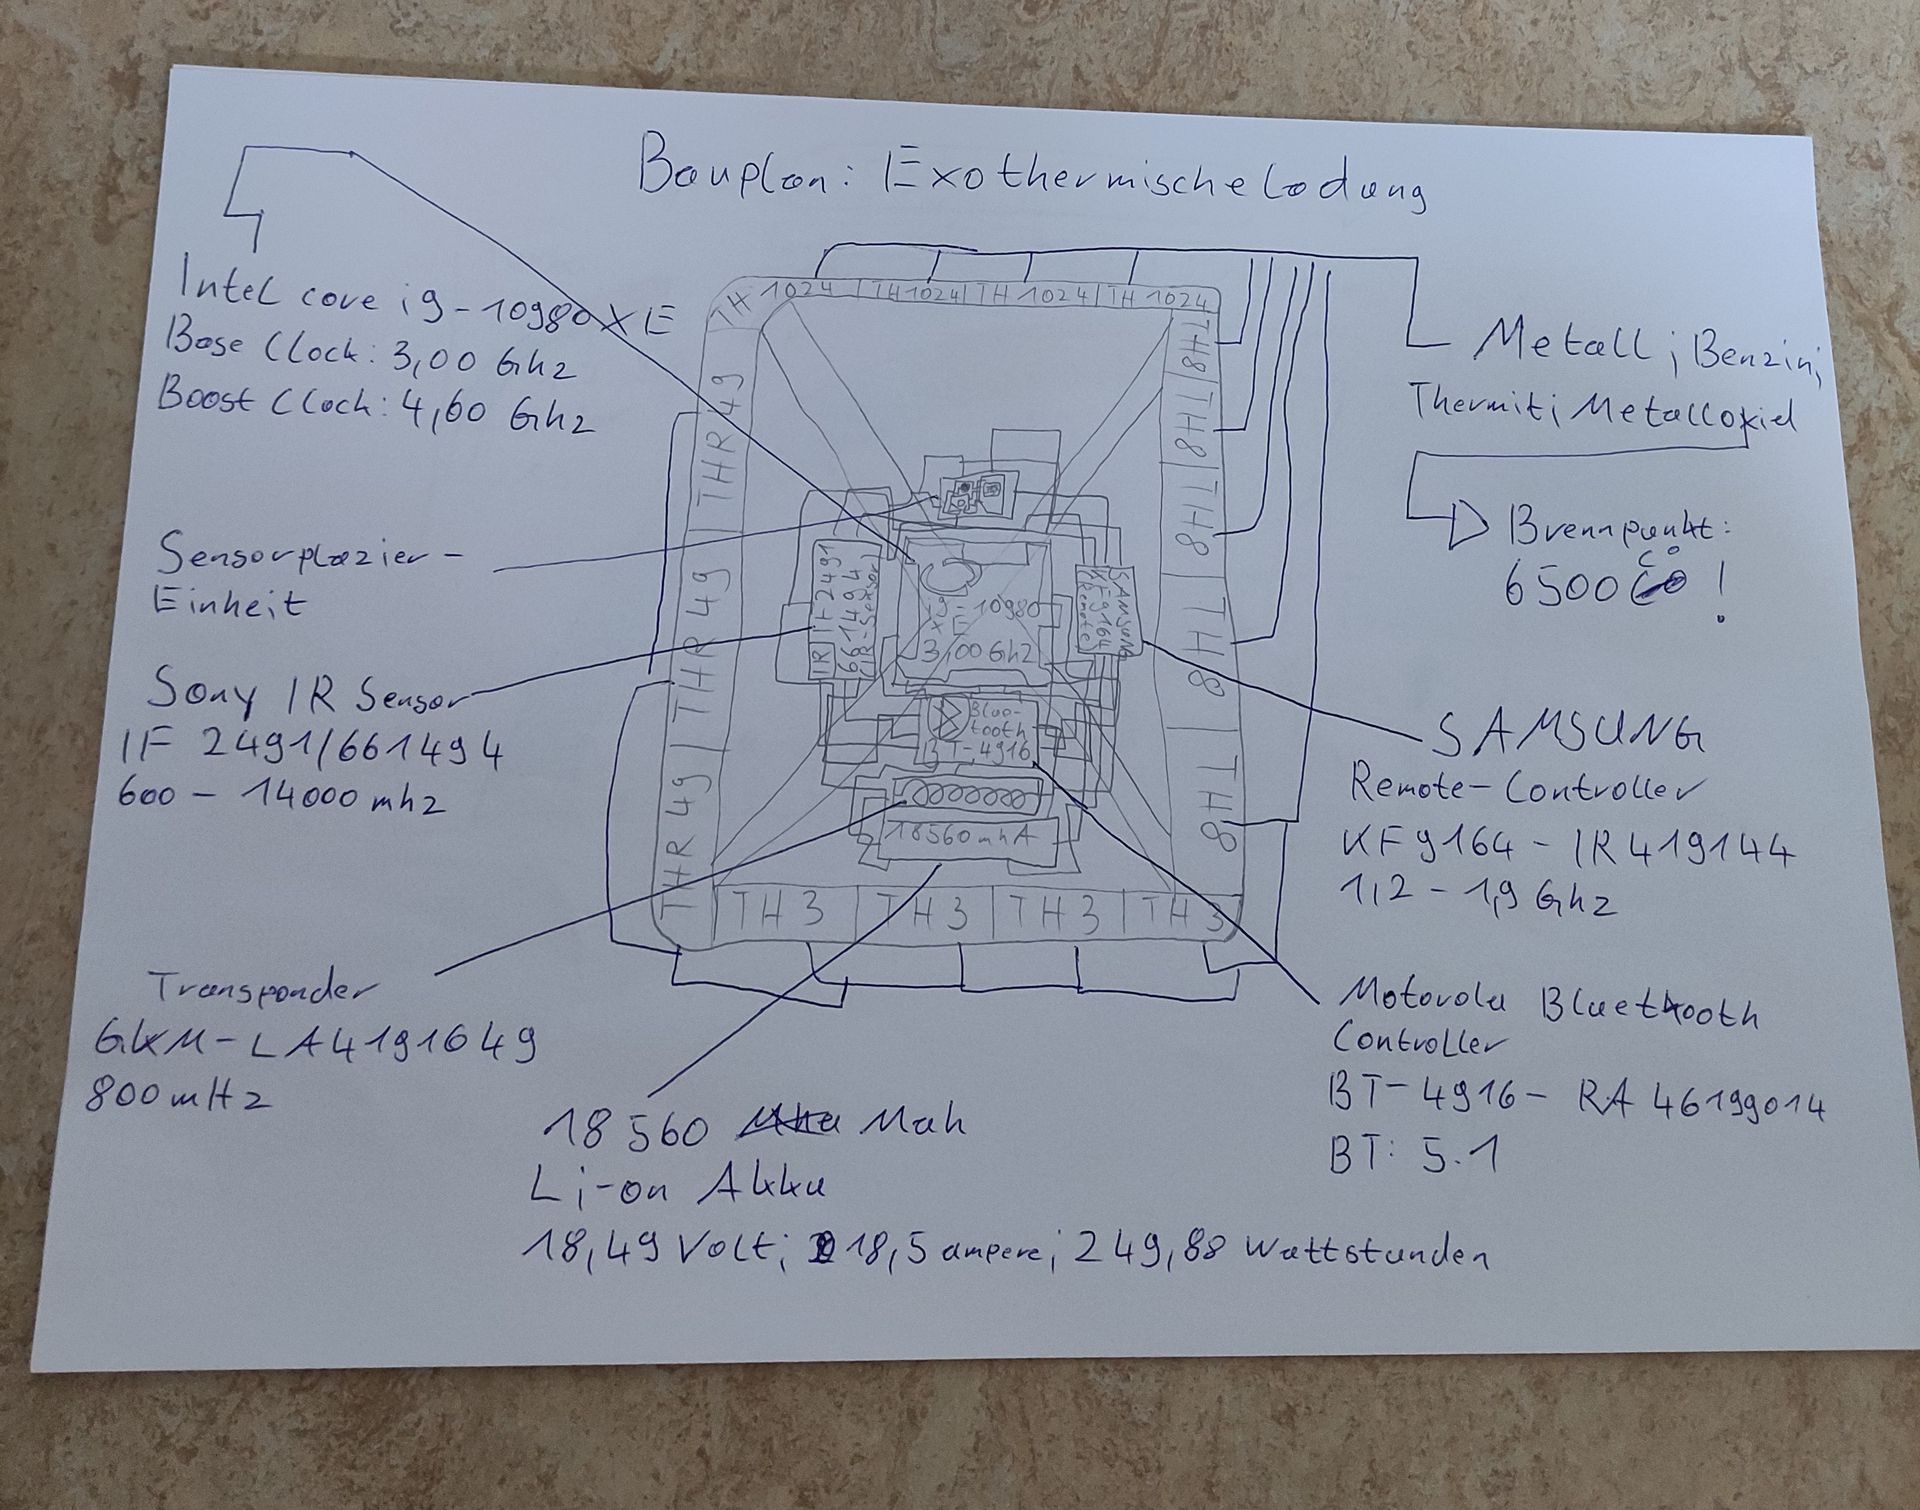 Bauplan: Exothermische Ladung
Intel core i9-10980XE
Base Clock: 3,00 Ghz
Boost Clock: 4,60 Ghz
Sensorplazier-
Einheit
Sony IR Sensor
IF 2491/661494
600 - 14000 mhz
Transponder
GKM-LA4191649
800 mHz
18560 Mah
Li-on Akku
18,49 Volt; 18,5 ampere; 249,88 Wattstunden
Metall; Benzin;
Thermit; Metalloxid
Brennpunkt:
6500 C° !
SAMSUNG
Remote-Controller
KF9164-IR419144
1,2 - 1,9 Ghz
Motorola Bluetooth
Controller
BT-4916-RA46199014
BT: 5.1
TH 1024 | TH 1024 | TH 1024 | TH 1024
TH8 | TH8 | TH8 | TH8 | TH8
THR 49 | THR 49 | THR 49
TH 3 | TH 3 | TH 3 | TH 3
661494
IR-Sensor
i9-10980
XE
3,00 Ghz
SAMSUNG
KF9164
Remote
Blue-
tooth
BT-4916
18560 mhA